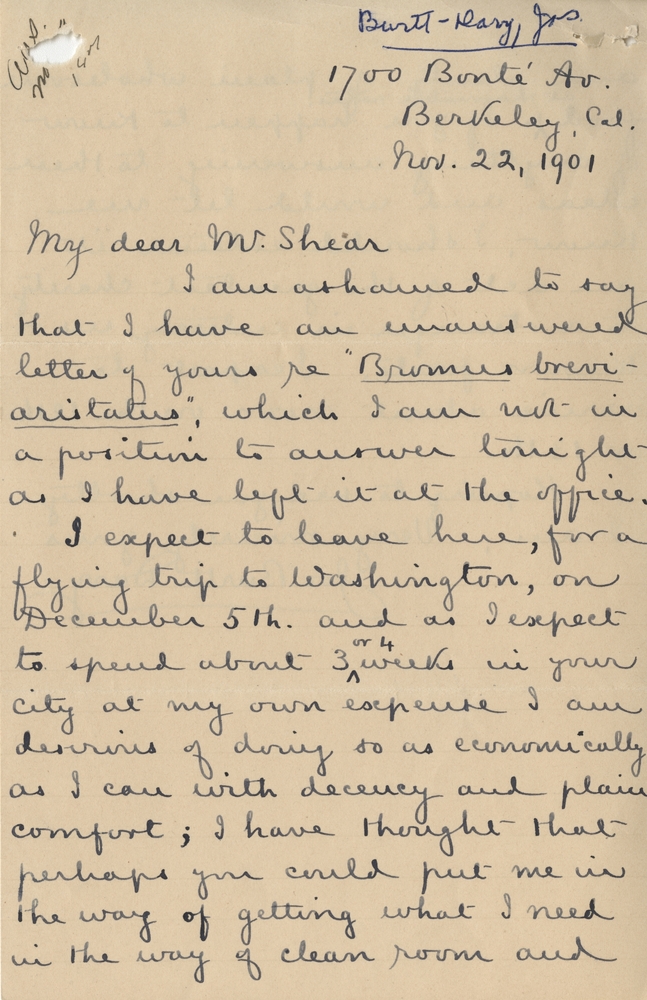 Ans.
no
Burtt-Davy, Jos.
1700 Bonté Av.
Berkeley, Cal.
Nov. 22, 1901
My dear Mr. Shear
I am ashamed to say
that I have an unanswered
letter of yours re "Bromus brevi-
aristatus", which I am not in
a position to answer tonight
as I have left it at the office.
I expect to leave here, for a
flying trip to Washington, on
December 5th. and as I expect
to spend about 3 or 4 weeks in your
city at my own expense I am
desirous of doing so as economically
as I can with decency and plain
comfort; I have thought that
perhaps you could put me in
the way of getting what I need
in the way of clean room and